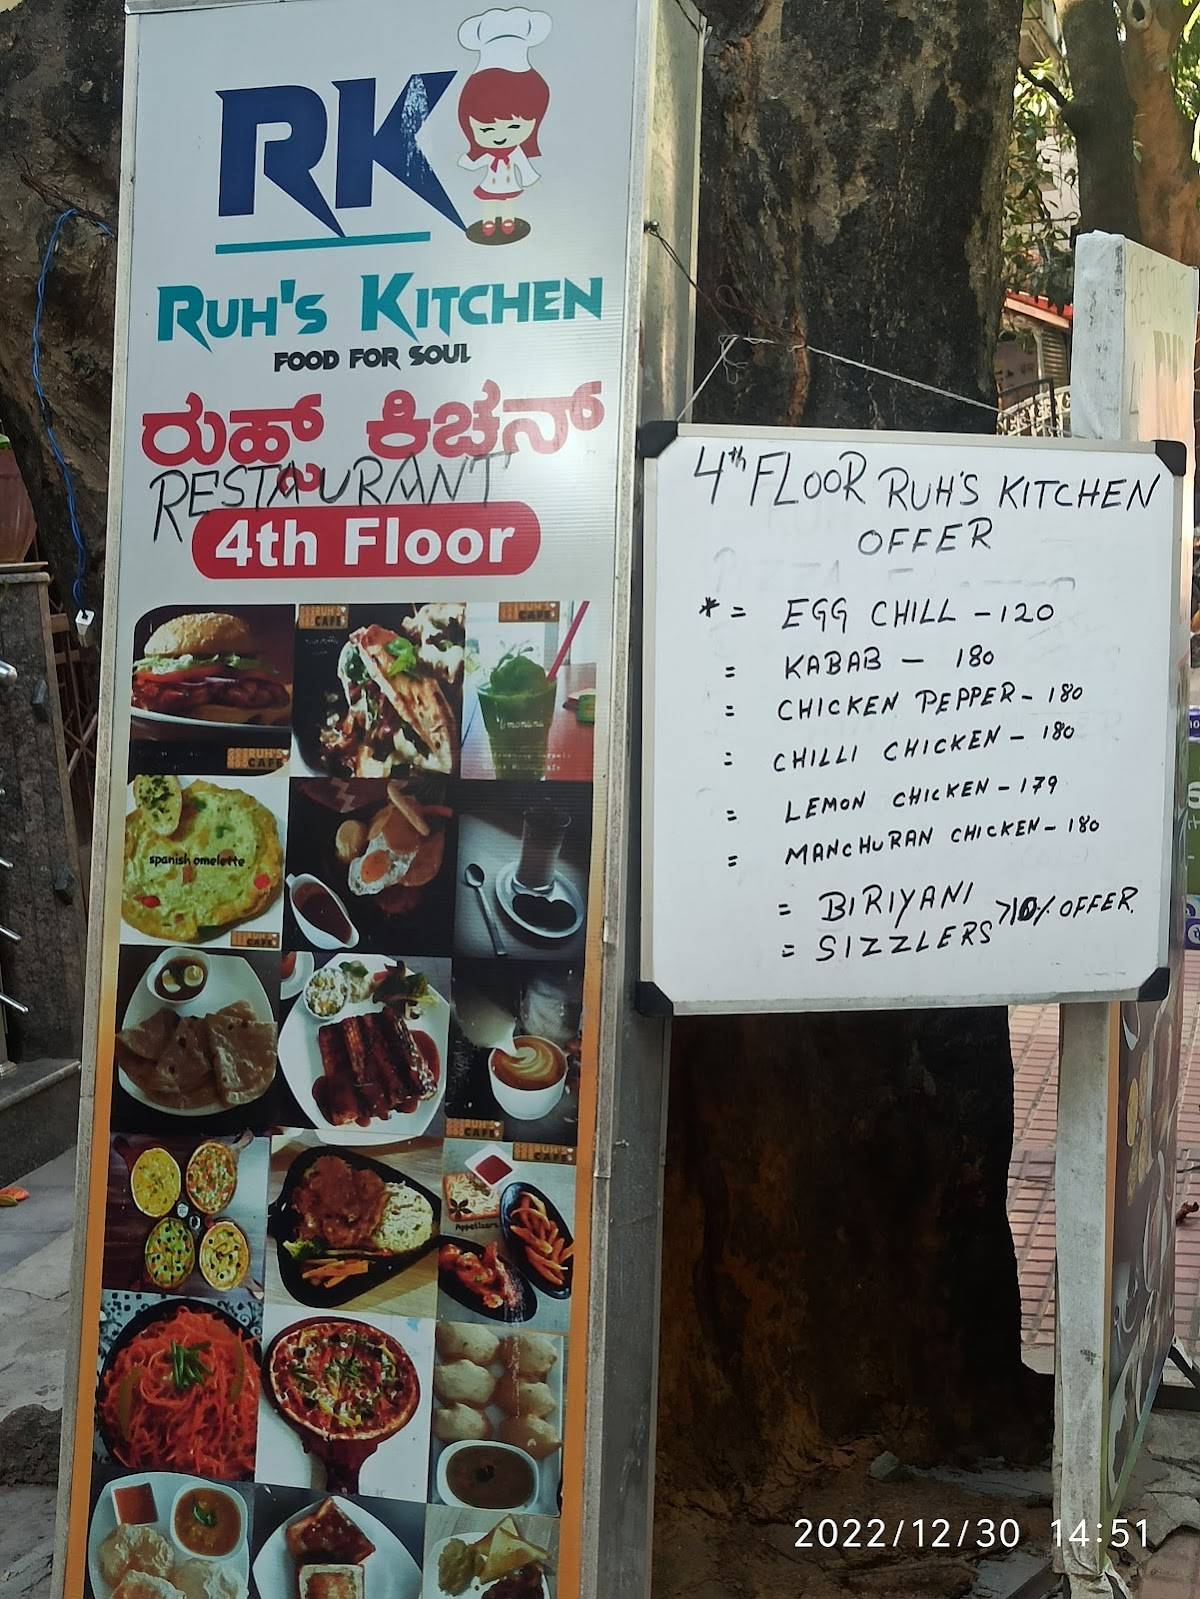 RK
RUH'S KITCHEN
FOOD FOR SOUL
ರುಹ್ಸ್ ಕಿಚನ್
RESTAURANT
4th Floor
RUH'S CAFE
RUH'S CAFE
limonana
RUH'S CAFE
spanish omelette
RUH'S CAFE
RUH'S CAFE
RUH'S CAFE
Appetizers
4th FLOOR RUH'S KITCHEN
OFFER
* = EGG CHILL - 120
= KABAB - 180
= CHICKEN PEPPER - 180
= CHILLI CHICKEN - 180
= LEMON CHICKEN - 179
= MANCHURAN CHICKEN - 180
= BIRIYANI
= SIZZLERS >10% OFFER.
2022/12/30 14:51